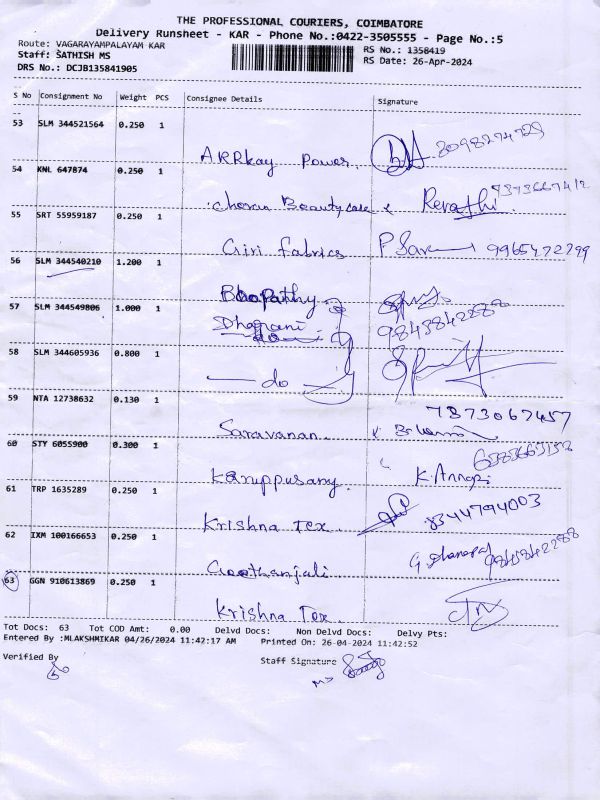 THE PROFESSIONAL COURIERS, COIMBATORE
Delivery Runsheet - KAR - Phone No.:0422-3505555 - Page No.:5
Route: VAGARAYAMPALAYAM KAR
RS No.: 1358419
Staff: SATHISH MS
RS Date: 26-Apr-2024
DRS No.: DCJB135841905
S No Consignment No Weight PCS Consignee Details Signature
53 SLM 344521564 0.250 1
ARRkay Power.
54 KNL 647874 0.250 1
Beautycase Revathi
55 SRT 55959187 0.250 1
Giri fabrics 9965472299
56 SLM 344540210 1.200 1
Boopathy
57 SLM 344549806 1.000 1
Dharani 9843842288
do
58 SLM 344605936 0.800 1
do
59 NTA 12738632 0.130 1
7873067457
Saravanan.
60 STY 6055900 0.300 1
Karuppusamy.
61 TRP 1635289 0.250 1
Krishna Tex. 8344794003
62 IXM 100166653 0.250 1
Geethanjali 9843842288
63 GGN 910613869 0.250 1
Krishna Tex.
Tot Docs: 63 Tot COD Amt: 0.00 Delvd Docs: Non Delvd Docs: Delvy Pts:
Entered By :MLAKSHMIKAR 04/26/2024 11:42:17 AM Printed On: 26-04-2024 11:42:52
Verified By
Staff Signature